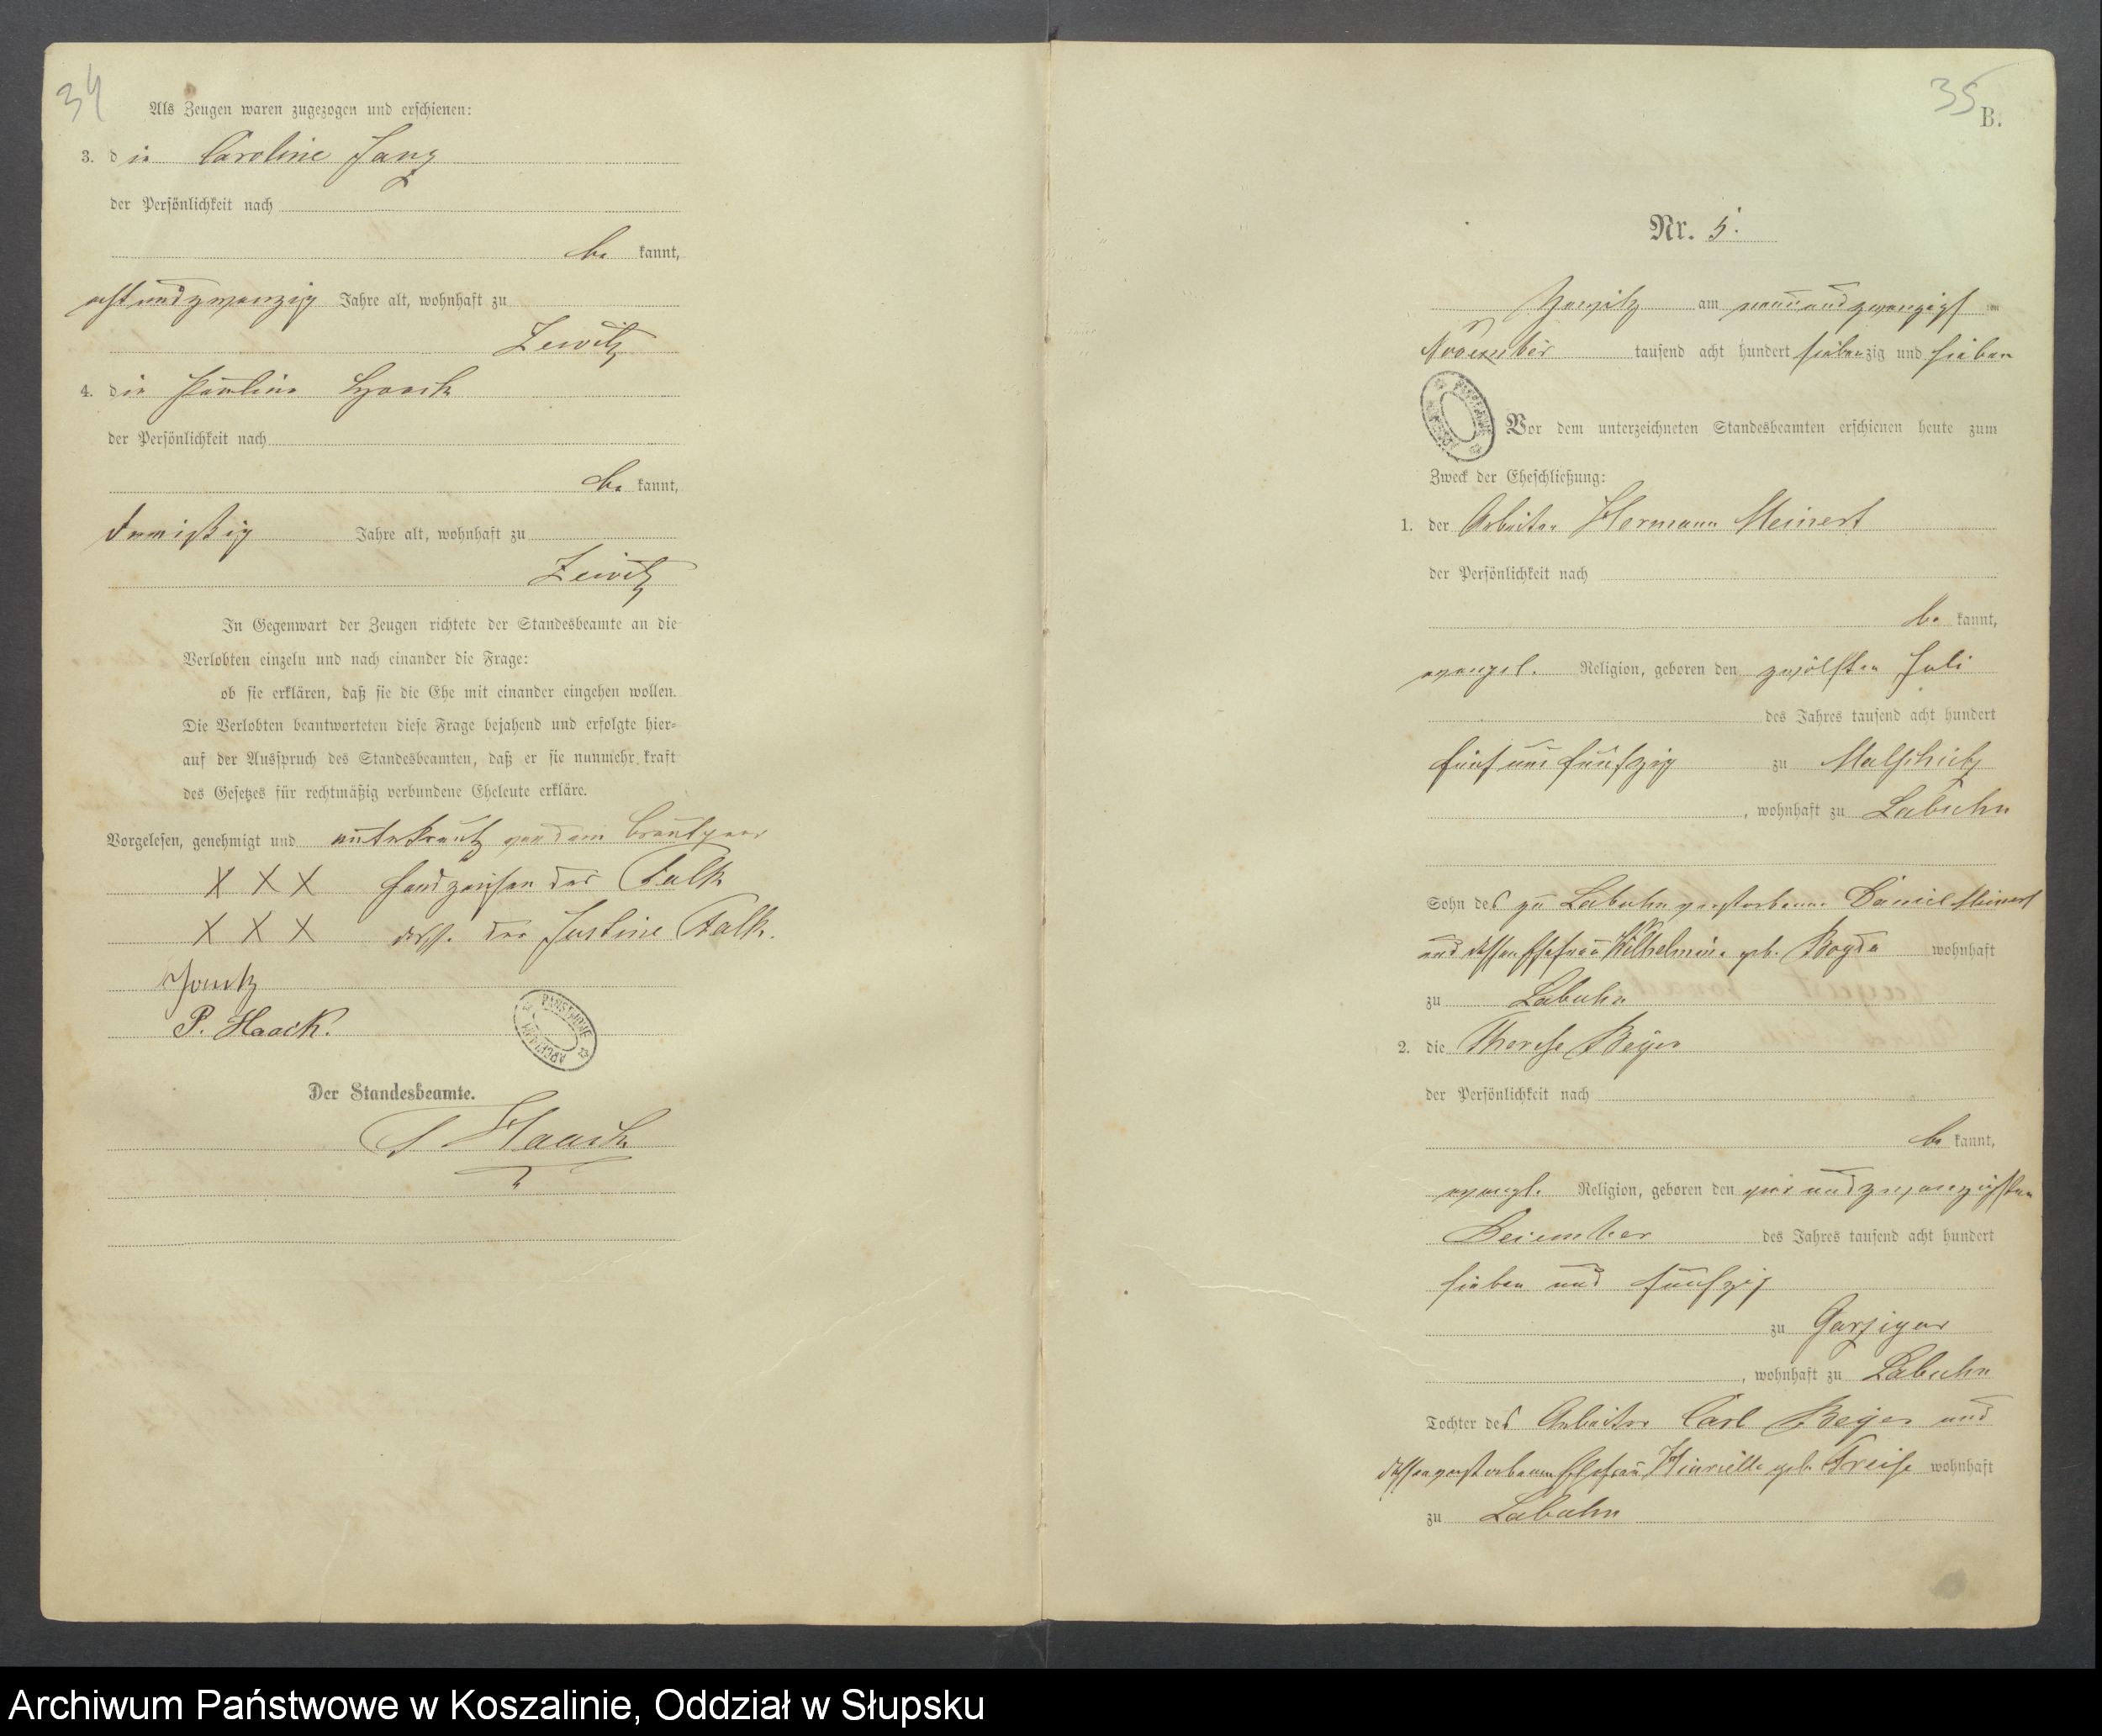 34
Als Zeugen waren zugezogen und erschienen:
3. die Caroline
der Persönlichkeit nach
be kannt,
achtundzwanzig Jahre alt, wohnhaft zu
Zewitz
4. die Pauline Haack
der Persönlichkeit nach
be kannt,
dreißig Jahre alt, wohnhaft zu
Zewitz
In Gegenwart der Zeugen richtete der Standesbeamte an die
Verlobten einzeln und nach einander die Frage:
ob sie erklären, daß sie die Ehe mit einander eingehen wollen.
Die Verlobten beantworteten diese Frage bejahend und erfolgte hier-
auf der Ausspruch des Standesbeamten, daß er sie nunmehr kraft
des Gesetzes für rechtmäßig verbundene Eheleute erkläre.
Vorgelesen, genehmigt und unterkreuzt von dem Brautpaar
X X X Handzeichen des Falk
X X X der Justine Falk.
P. Haack.
PAŃSTWOWE ARCHIWUM
Der Standesbeamte.
Haack
35
B.
Nr. 5.
Zewitz am neunundzwanzigst en
November tausend acht hundert siebenzig und sieben
Vor dem unterzeichneten Standesbeamten erschienen heute zum
Zweck der Eheschließung:
1. der Arbeiter Hermann Meinert
der Persönlichkeit nach
be kannt,
evangel. Religion, geboren den zwölften Juli
des Jahres tausend acht hundert
fünf und fünfzig zu Malschütz
, wohnhaft zu Labuhn
Sohn des zu Labuhn verstorbenen Daniel Meinert
und dessen Ehefrau Wilhelmine geb. wohnhaft
zu Labuhn
2. die Therese Beyer
der Persönlichkeit nach
be kannt,
evangl. Religion, geboren den vierundzwanzigsten
Dezember des Jahres tausend acht hundert
sieben und fünfzig
zu Garzigar
, wohnhaft zu Labuhn
Tochter des Arbeiter Carl Beyer und
dessen verstorbenen Ehefrau geb. wohnhaft
zu Labuhn
Archiwum Państwowe w Koszalinie, Oddział w Słupsku